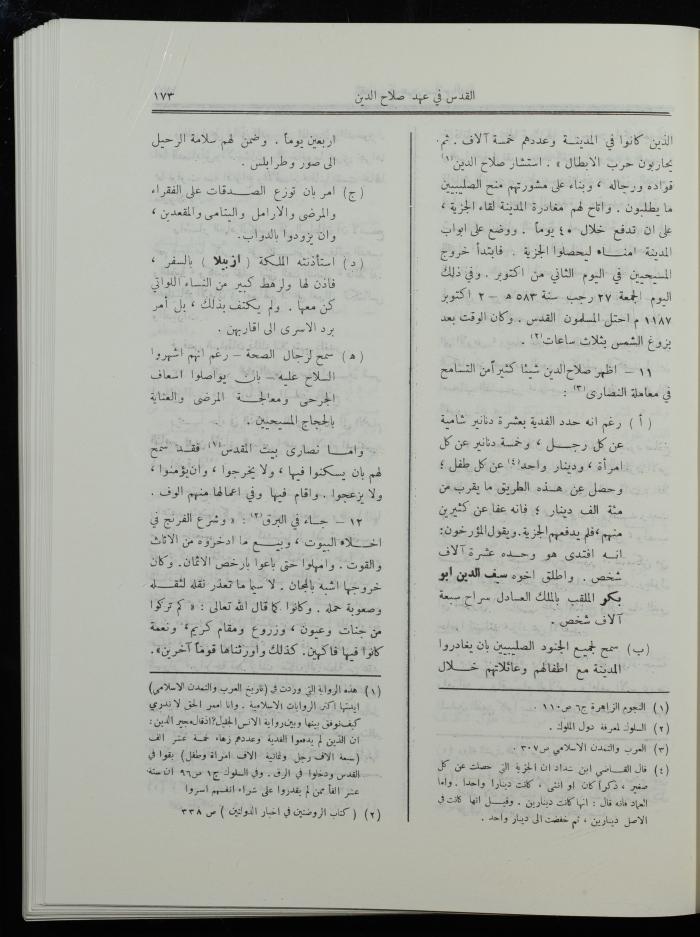 القدس في عهد صلاح الدين
١٧٣
الذين كانوا في المدينة وعددهم خمسة آلاف . ثم
يحاربون حرب الابطال » . استشار صلاح الدين(١)
قواده ورجاله ، وبناء على مشورتهم منح الصليبيين
ما يطلبون . واتاح لهم مغادرة المدينة لقاء الجزية ،
على ان تدفع خلال ٤٠ يوماً . ووضع على ابواب
المدينة امناء ليحصلوا الجزية . فابتدأ خروج
المسيحيين في اليوم الثاني من اكتوبر . وفي ذلك
اليوم الجمعة ٢٧ رجب سنة ٥٨٣ هـ – ٢ اكتوبر
١١٨٧ م احتل المسلمون القدس . وكان الوقت بعد
بزوغ الشمس بثلاث ساعات(٢) .
١١ – اظهر صلاح الدين شيئا كثيراً من التسامح
في معاملة النصارى(٣) :
( أ ) رغم انه حدد الفدية بعشرة دنانير شامية
عن كل رجل ، وخمسة دنانير عن كل
امرأة ، ودينار واحد(٤) عن كل طفل ؛
وحصل عن هذه الطريق ما يقرب من
مئة الف دينار ؛ فانه عفا عن كثيرين
منهم ، فلم يدفعهم الجزية . ويقول المؤرخون :
انه افتدى هو وحده عشرة آلاف
شخص . واطلق اخوه سيف الدين ابو
بكر الملقب بالملك العادل سراح سبعة
آلاف شخص .
(ب) سمح لجميع الجنود الصليبيين بان يغادروا
المدينة مع اطفالهم وعائلاتهم خلال
(١) النجوم الزاهرة ج٦ ص ١١٠ .
(٢) السلوك لمعرفة دول الملوك .
(٣) العرب والتمدن الاسلامي ص ٣٠٧ .
(٤) قال القاضي ابن شداد ان الجزية التي حصلت عن كل
صغير ، ذكراً كان او انثى ، كانت ديناراً واحداً . واما
العماد فانه قال : انها كانت دينارين . وقيل انها كانت في
الاصل دينارين ، ثم خفضت الى دينار واحد .
اربعين يوماً . وضمن لهم سلامة الرحيل
الى صور وطرابلس .
(ج) امر بان توزع الصدقات على الفقراء
والمرضى والارامل واليتامى والمقعدين ،
وان يزودوا بالدواب .
(د) استأذنته الملكة ( ازبيلا ) بالسفر ،
فاذن لها ولرهط كبير من النساء اللواتي
كن معها . ولم يكتف بذلك ، بل أمر
برد الاسرى الى اقاربهن .
(ه) سمح لرجال الصحة – رغم انهم اشهروا
السلاح عليه – بان يواصلوا اسعاف
الجرحى ومعالجة المرضى والعناية
بالحجاج المسيحيين .
واما نصارى بيت المقدس(١) فقد سمح
لهم بان يسكنوا فيها ، ولا يخرجوا ، وان يؤمنوا ،
ولا يزعجوا . واقام فيها وفي اعمالها منهم الوف .
١٢ – جاء في البرق(٢) : « وشرع الفرنج في
اخلاء البيوت ، وبيع ما ادخروه من الاثاث
والقوت . وامهلوا حتى باعوا بارخص الاثمان . وكان
خروجها اشبه بالمجان . لا سيما ما تعذر نقله لثقله
وصعوبة حمله . وكانوا كما قال الله تعالى : « كم تركوا
من جنات وعيون ، وزروع ومقام كريم ، ونعمة
كانوا فيها فاكهين . كذلك واورثناها قوماً آخرين » .
(١) هذه الرواية التي وردت في (تاريخ العرب والتمدن الاسلامي)
ايدتها اكثر الروايات الاسلامية . وانا امر الحق لا ندري
كيف نوفق بينها وبين رواية الانس الجليل؟ اذ قال مجير الدين :
ان الذين لم يدفعوا الفدية وعددهم زهاء خمسة عشر الف
(سبعة الاف رجل وثمانية الاف امرأة وطفل) بقوا في
القدس ودخلوا في الرق . وفي السلوك ج١ ص ٩٦ ان ستة
عشر الفاً ممن لم يقدروا على شراء انفسهم اسروا
(٢) ( كتاب الروضتين في اخبار الدولتين ) ص ٣٣٨